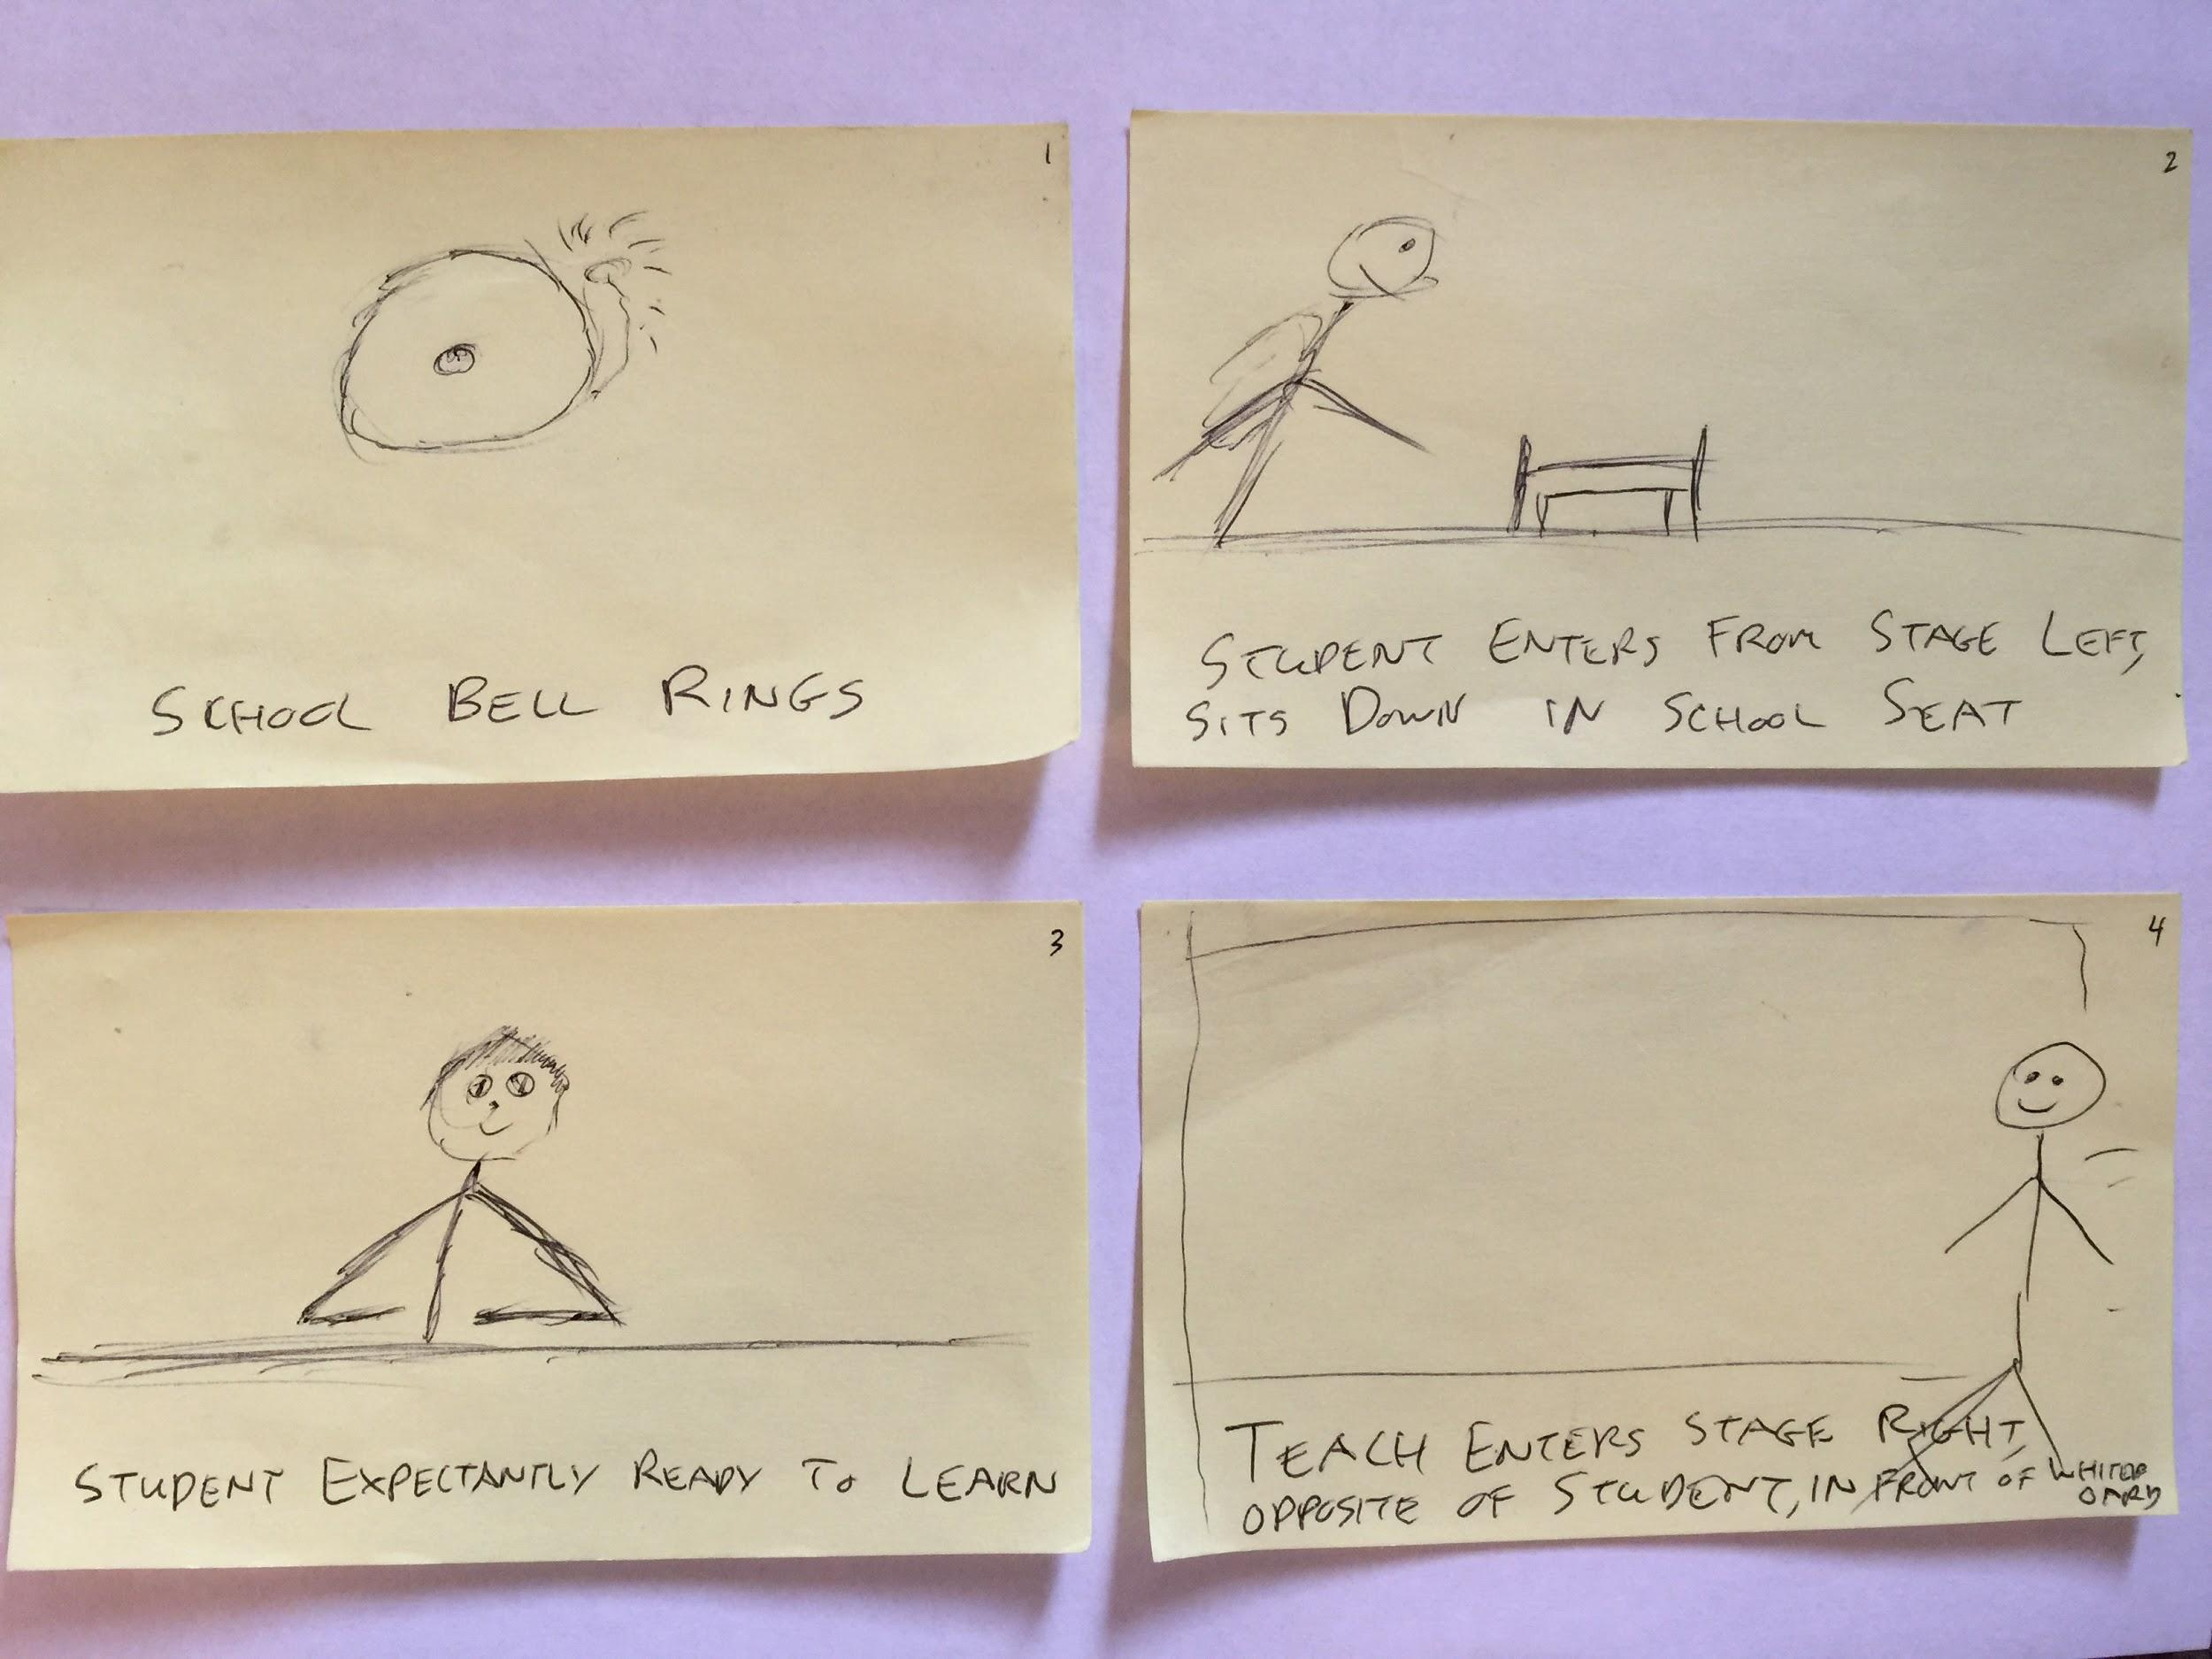 1
SCHOOL BELL RINGS
2
STUDENT ENTERS FROM STAGE LEFT,
SITS DOWN IN SCHOOL SEAT
3
STUDENT EXPECTANTLY READY TO LEARN
4
TEACH ENTERS STAGE RIGHT,
OPPOSITE OF STUDENT, IN FRONT OF WHITEB
OARD